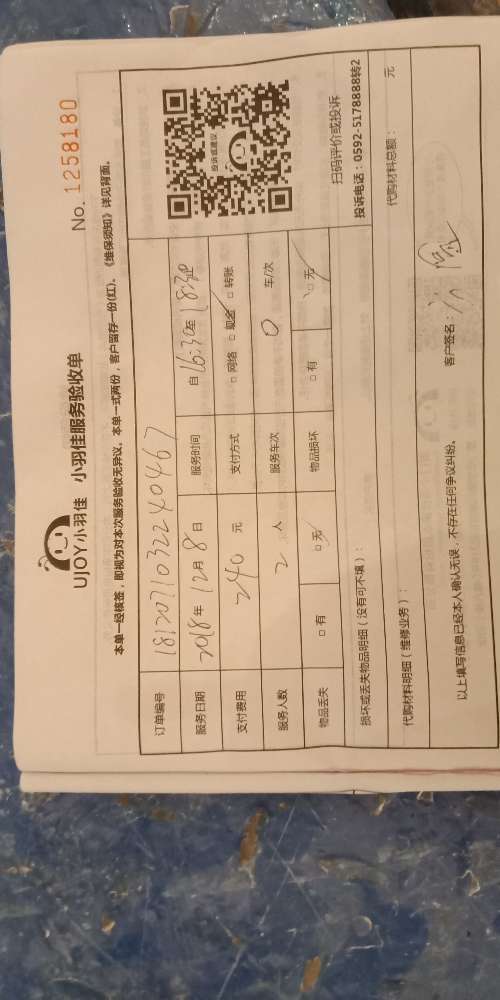 No. 1258180
UJOY小羽佳 小羽佳服务验收单
本单一经核签，即视为对本次服务验收无异议，本单一式两份，客户留存一份(红)。《维保须知》详见背面。
订单编号 181207103224046​7
服务日期 2018年 12月 8日 服务时间 自 16:30至 18:30止
支付费用 240 元 支付方式 □ 网络 □ 现金 □ 转账
服务人数 2 人 服务车次 0 车/次
物品丢失 □ 有 □ 无 物品损坏 □ 有 □ 无
投诉或建议
扫码评价或投诉
损坏或丢失物品明细（没有可不填）：
投诉电话：0592-5178888转2
代购材料明细（维修业务）：
代购材料总额： 元
以上填写信息已经本人确认无误，不存在任何争议纠纷。
客户签名：